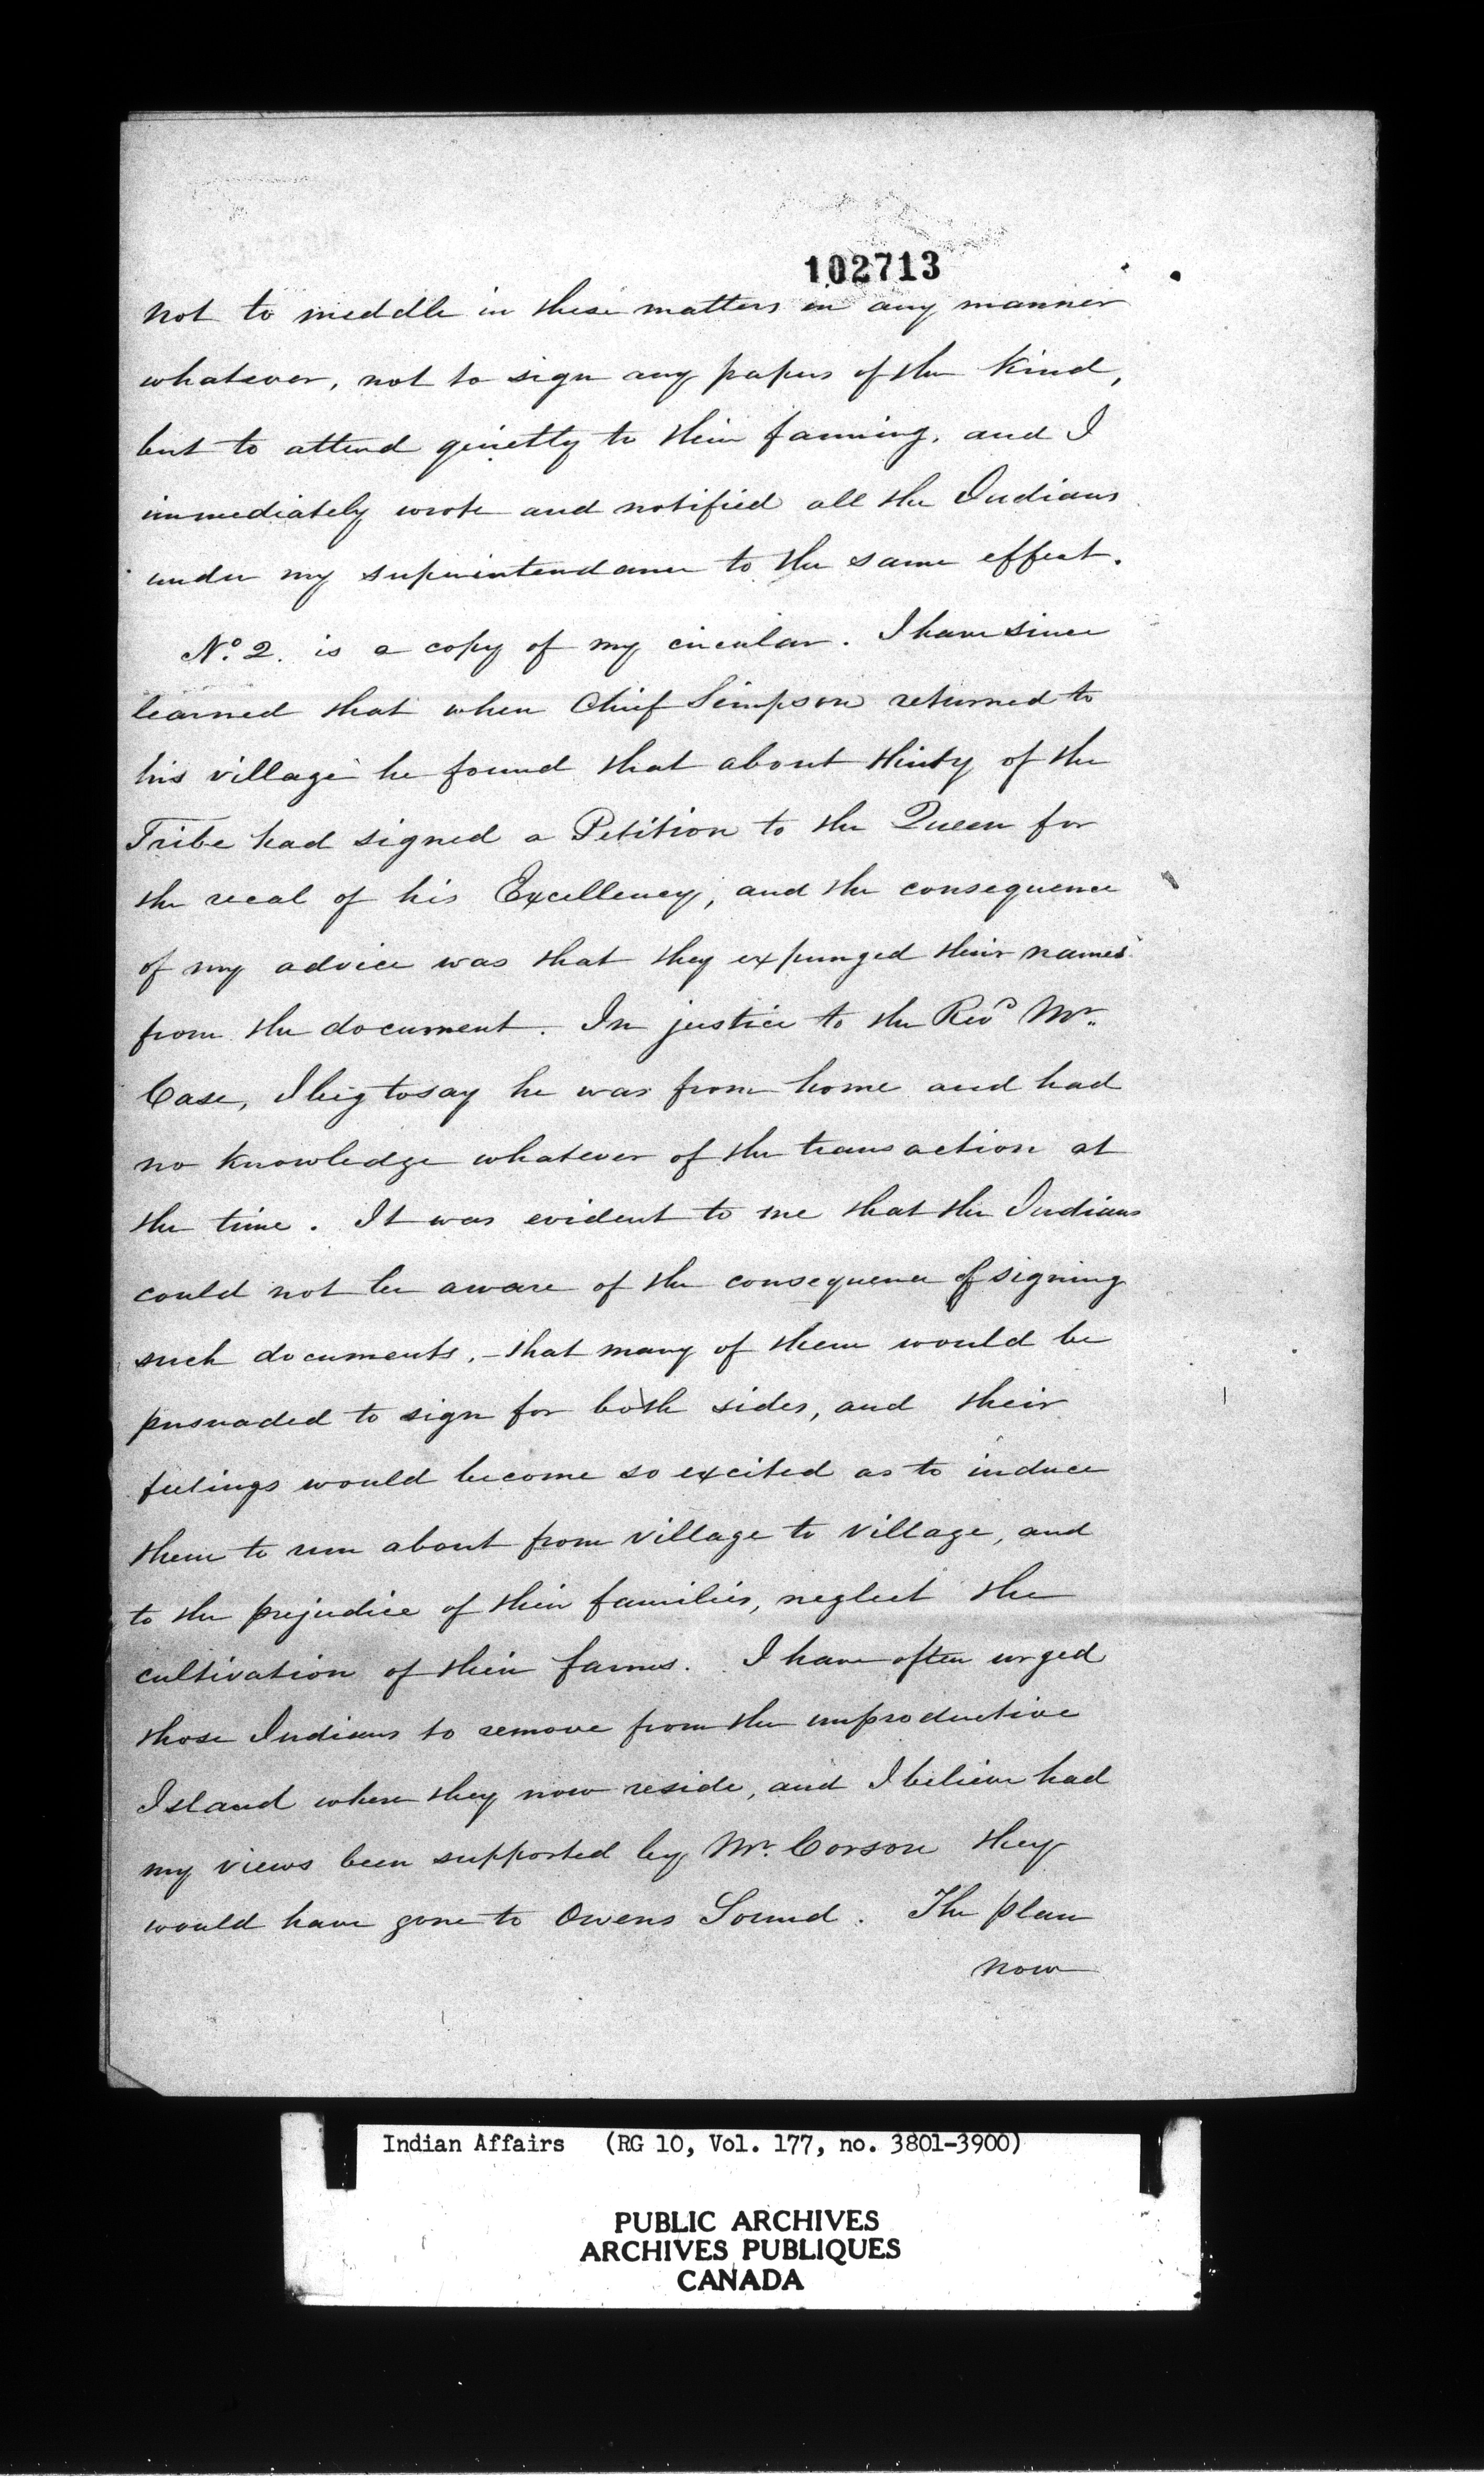 102713
not to meddle in these matters in any manner
whatever, not to sign any papers of the kind,
but to attend quietly to their farming, and I
immediately wrote and notified all the Indians
under my superintendance to the same effect.
No. 2. is a copy of my circular. I have since
learned that when Chief Simpson returned to
his village he found that about thirty of the
Tribe had signed a Petition to the Queen for
the recal of his Excellency, and the consequence
of my advice was that they expunged their names
from the document. In justice to the Revd Mr.
Case, I beg to say he was from home and had
no knowledge whatever of the transaction at
the time. It was evident to me that the Indians
could not be aware of the consequence of signing
such documents, - that many of them would be
persuaded to sign for both sides, and their
feelings would become so excited as to induce
them to run about from village to village, and
to the prejudice of their families, neglect the
cultivation of their farms. I have often urged
those Indians to remove from the unproductive
Island where they now reside, and I believe had
my views been supported by Mr. Corson they
would have gone to Owens Sound. The plan
now
Indian Affairs (RG 10, Vol. 177, no. 3801-3900)
PUBLIC ARCHIVES
ARCHIVES PUBLIQUES
CANADA